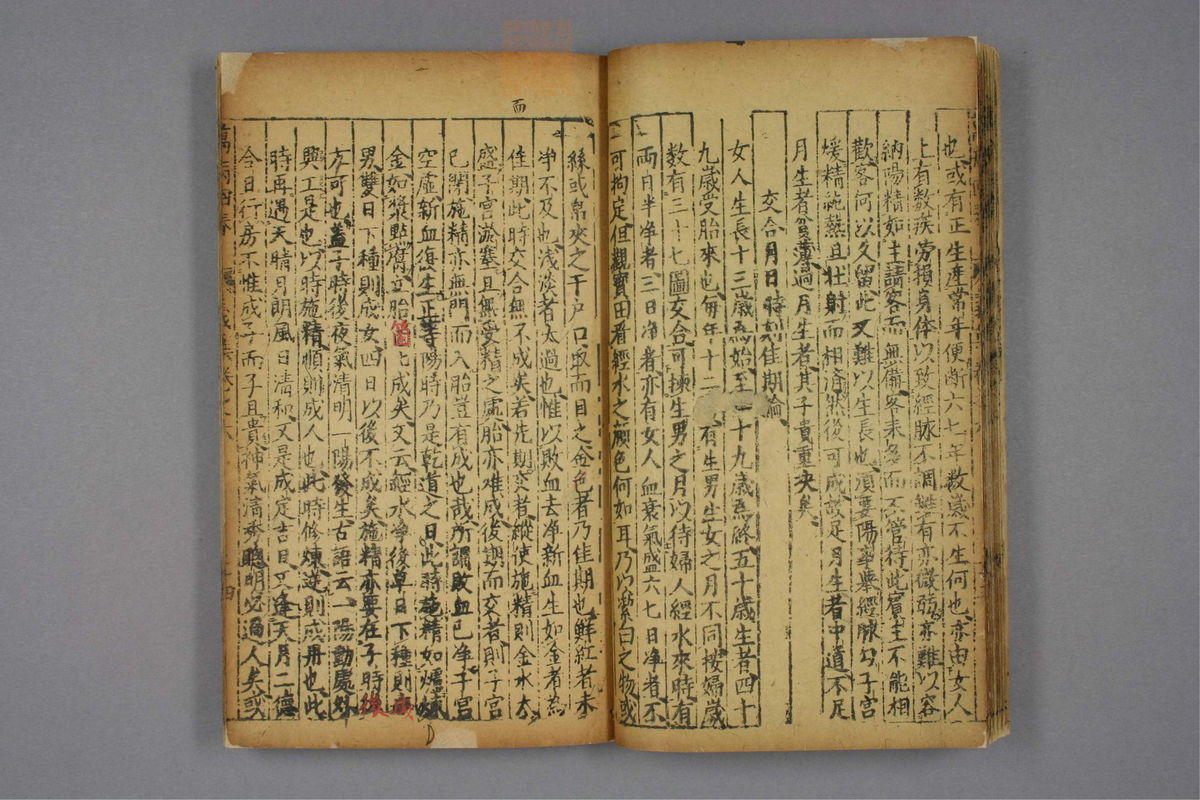 也或有正生産常年便斷六七年数歳不生何也亦由女人
上有数疾勞損身体以致經脉不調雖有亦微弱亦難以容
納陽精如主請客而無備客未多而不管待此賓主不能相
歡客何以久留此又難以生長也須要陽事舉經脉匀子宫
煖精純熱且壮射而相濟然後可成故足月生者中道不足
月生者貧薄過月生者其子貴重夬矣
交合月日時刻佳期論
女人生長十三歳爲始至四十九歳爲終五十歳生者四十
九歳受胎來也毎年十二 有生男生女之月不同按婦歳
数有三十七圖交合可揀生男之月以待婦人經水來時有
两日半净者三日净者亦有女人血衰氣盛六七日净者不
可拘定但觀寳田看經水之顔色何如耳乃以潔白之物或
而
絲或帛夾之于戸口取而目之金色者乃佳期也鮮紅者未
净不及也浅淡者太過也惟以敗血去净新血生如金者爲
佳期此時交合無不成矣若先期交者縱使施精則金水太
盛子宫淤塞且無受精之處胎亦难成後期而交者則子宫
已閉施精亦無門而入胎豈有成也哉所謂敗血已净子宫
空虚新血復生正等陽時乃是乾道之日此時施精如爐
金如漿點腐 胎 七成矣又云經水净後草日下種則成
男雙日下種則成女四日以後不成矣施精亦要在子時後
方可也蓋子時後夜氣清明一陽發生古語云一陽動處好
興工是也以時施精順則成人也此時修煉逆則成丹也此
時再遇天晴月朗風日清和又是成定吉日又逢天月二德
合日行房不惟成子而子且貴神氣清秀聰明必過人矣或